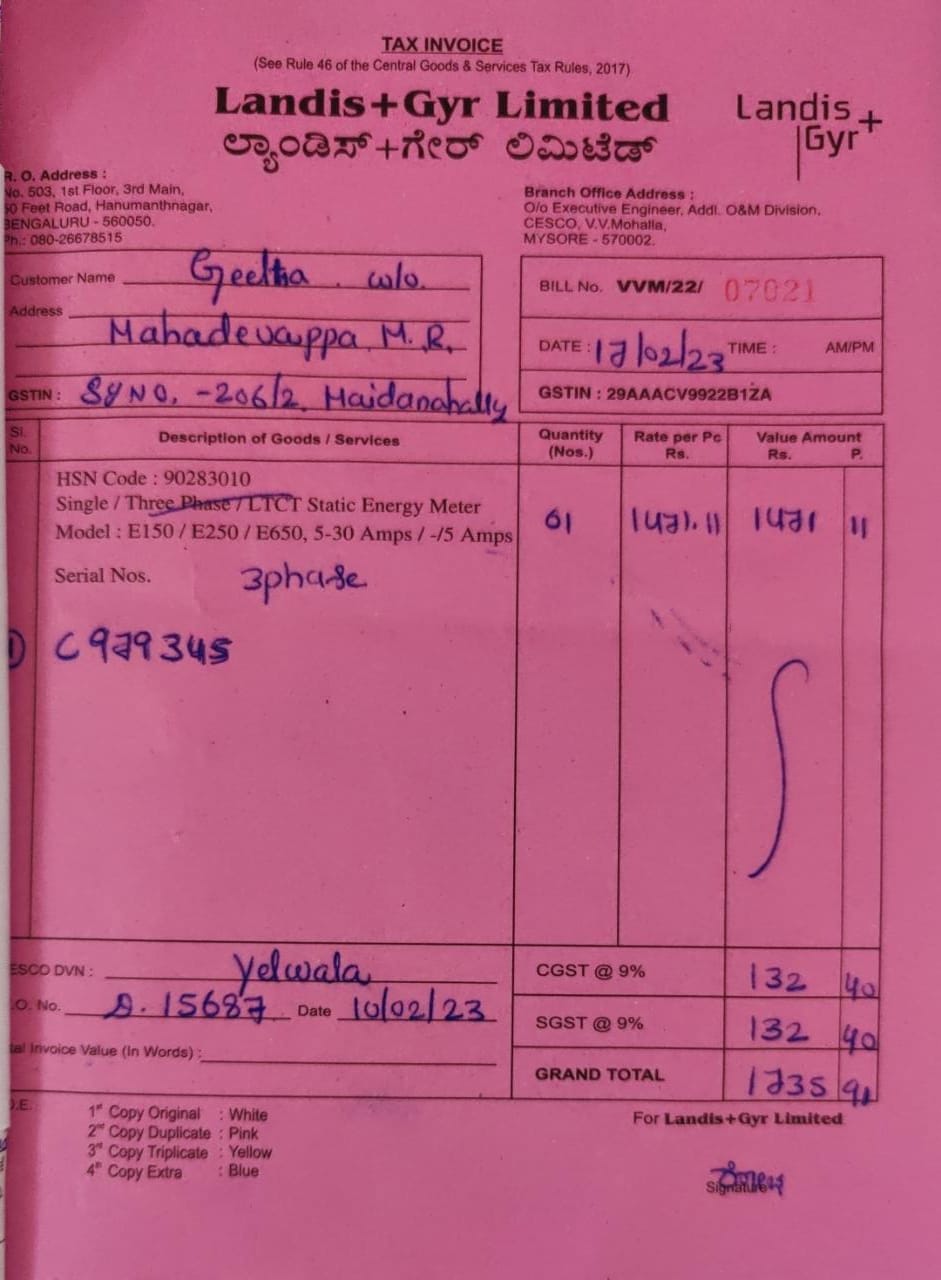 TAX INVOICE
(See Rule 46 of the Central Goods & Services Tax Rules, 2017)
Landis+Gyr Limited
ಲ್ಯಾಂಡಿಸ್+ಗೇರ್ ಲಿಮಿಟೆಡ್
Landis+Gyr+
R. O. Address :
No. 503, 1st Floor, 3rd Main,
50 Feet Road, Hanumanthnagar,
BENGALURU - 560050.
Ph.: 080-26678515
Branch Office Address :
O/o Executive Engineer, Addl. O&M Division,
CESCO, V.V.Mohalla,
MYSORE - 570002.
Customer Name Geetha . w/o.
Address
Mahadevappa M.R.
GSTIN : SY NO. -206/2, Maidanahally
BILL No. VVM/22/ 07021
DATE : 17/02/23 TIME : AM/PM
GSTIN : 29AAACV9922B1ZA
Sl. No. Description of Goods / Services Quantity (Nos.) Rate per Pc Rs. Value Amount Rs. P.
HSN Code : 90283010
Single / Three Phase / LTCT Static Energy Meter
Model : E150 / E250 / E650, 5-30 Amps / -/5 Amps 01 1471.11 1471 11
Serial Nos. 3phase
1) C979345
ESCO DVN : Yelwala
.O. No. D. 15687 Date 10/02/23
tal Invoice Value (In Words) :
CGST @ 9% 132 40
SGST @ 9% 132 40
GRAND TOTAL 1735 91
O.E.
1st Copy Original : White
2nd Copy Duplicate : Pink
3rd Copy Triplicate : Yellow
4th Copy Extra : Blue
For Landis+Gyr Limited
Signature